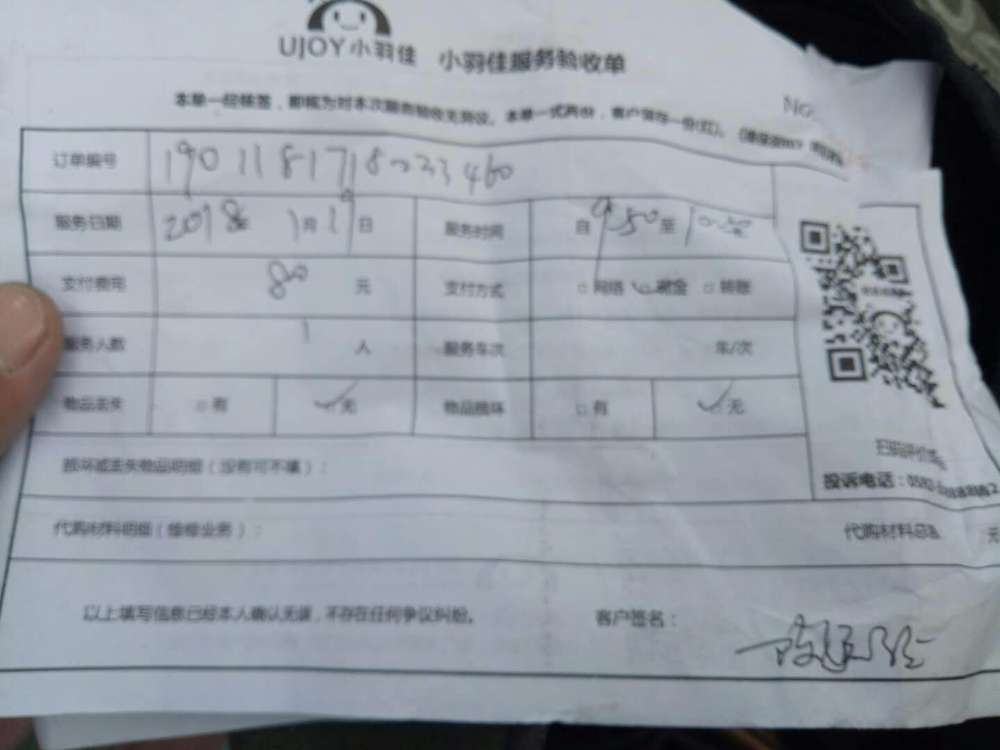 UJOY小羽佳 小羽佳服务验收单
No.
本单一经核签，即视为对本次服务验收无异议。本单一式两份，客户保存一份(红)。
订单编号 19011817182233460
服务日期 2018年 1月19日 服务时间 自 9:50 至
支付费用 80 元 支付方式 □网络 ☑现金 □转账
服务人数 1 人 服务车次 车/次
物品丢失 □有 ☑无 物品损坏 □有 ☑无
扫码评价
损坏或丢失物品明细（没有可不填）：
投诉电话：0592-
代购材料明细（维修业务）： 代购材料总额 元
以上填写信息已经本人确认无误，不存在任何争议纠纷。 客户签名：